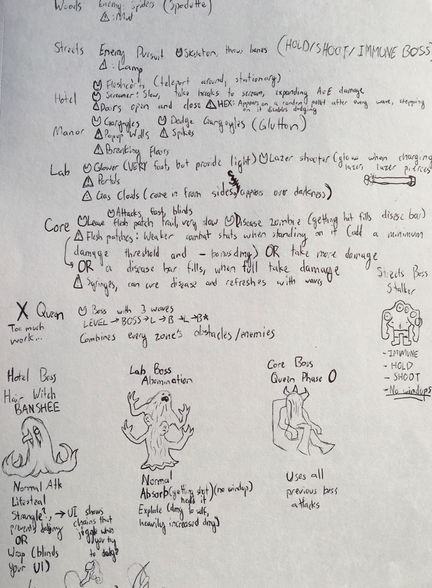 Woods Enemy: Spiders (Spodette)
⚠: Mud
Streets Enemy Pursuit Skeleton, throw bones (HOLD/SHOOT/IMMUNE BOSS)
⚠: Lamp
Flasher (teleport around, stationary)
Hotel Screamer: Slow, take breaks to scream, expanding AoE damage
⚠Doors open and close ⚠HEX: Appears on a random pallet after every wave, stepping on it disables dodging
Manor Gargoyles Dodge Gargoyles (Glutton)
⚠Popup Walls ⚠ Spikes
⚠ Breaking Floors
Lab Glower (VERY fast, but provide light) Lazer shooter (glow when charging lazer, lazer pierces)
⚠ Portals
⚠ Gas Clouds (come in from sides, appears over darkness)
Attacks fast, blinds
Core Leave flesh patch trail, very slow Disease zombie (getting hit fills disease bar)
⚠ Flesh patches: Weaker combat stats when standing on it (add a minimum
damage threshold and - bonusdmg) OR take more damage
OR a disease bar fills, when full take damage
⚠ Syringes, can cure disease and refreshes with waves
X Queen Boss with 3 waves
Too much work... LEVEL→BOSS→L→B→L→B*
Combines every zone's obstacles/enemies
Streets Boss
Stalker
- IMMUNE
- HOLD
- SHOOT
- No windups
Hotel Boss
Hair Witch
BANSHEE
Normal Atk
Lifesteal
Strangle? → UI shows chains that jiggle when you try to dodge
prevents dodging
OR
Wrap (blinds your UI)
Lab Boss
Abomination
Normal
Absorb (getting shot heals it) (no windup)
Explode (dmg to self, heavily increased dmg)
Core Boss
Queen Phase 0
Uses all
previous boss
attacks